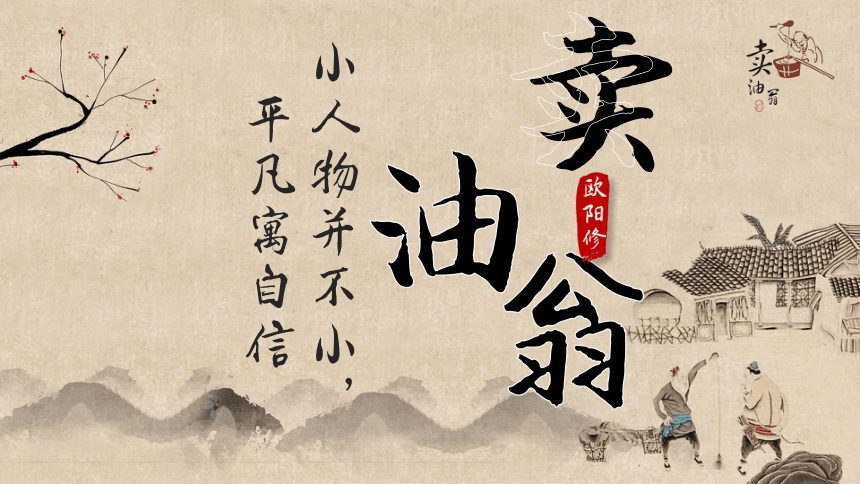 卖油翁
欧阳修
小人物并不小，
平凡寓自信
卖油翁